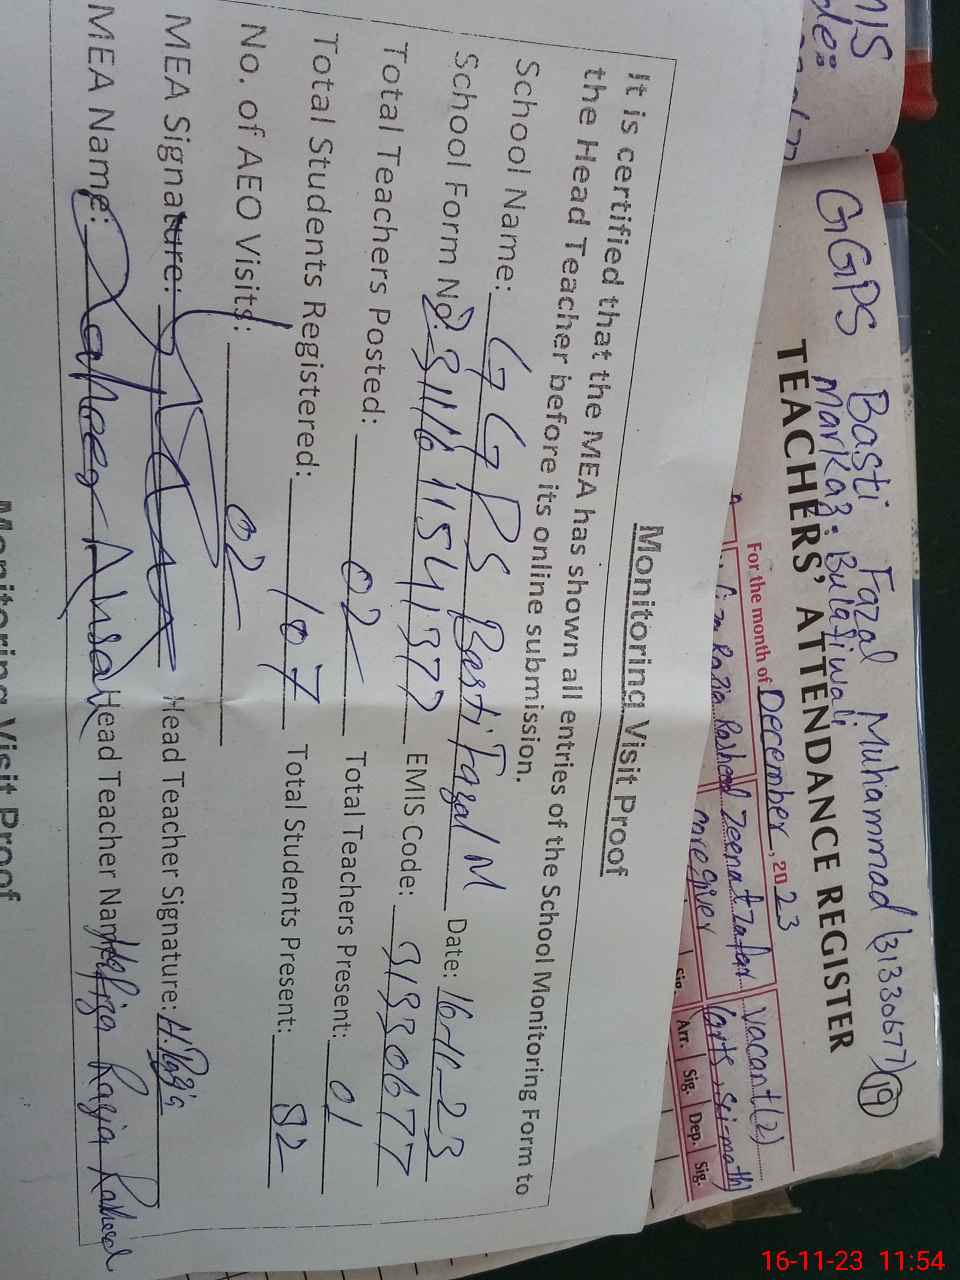 GGPS Basti Fazal Muhammad (31330677) 19
Markaz: Bulatiwali
TEACHERS' ATTENDANCE REGISTER
For the month of December, 2023
Razia Rasheed Zeenat Zafar Vacant (2)
caregiver (arts, sci-math)
Sig. Arr. Sig. Dep. Sig.
Monitoring Visit Proof
It is certified that the MEA has shown all entries of the School Monitoring Form to
the Head Teacher before its online submission.
School Name: GGPS Basti Fazal M Date: 16-11-23
School Form No: EMIS Code: 31330677
Total Teachers Posted: 02 Total Teachers Present: 01
Total Students Registered: 107 Total Students Present: 82
No. of AEO Visits: 02
MEA Signature: Head Teacher Signature: H.Razia
MEA Name: Head Teacher Name: Hafiza Razia Rasheed
Monitoring Visit Proof
16-11-23 11:54